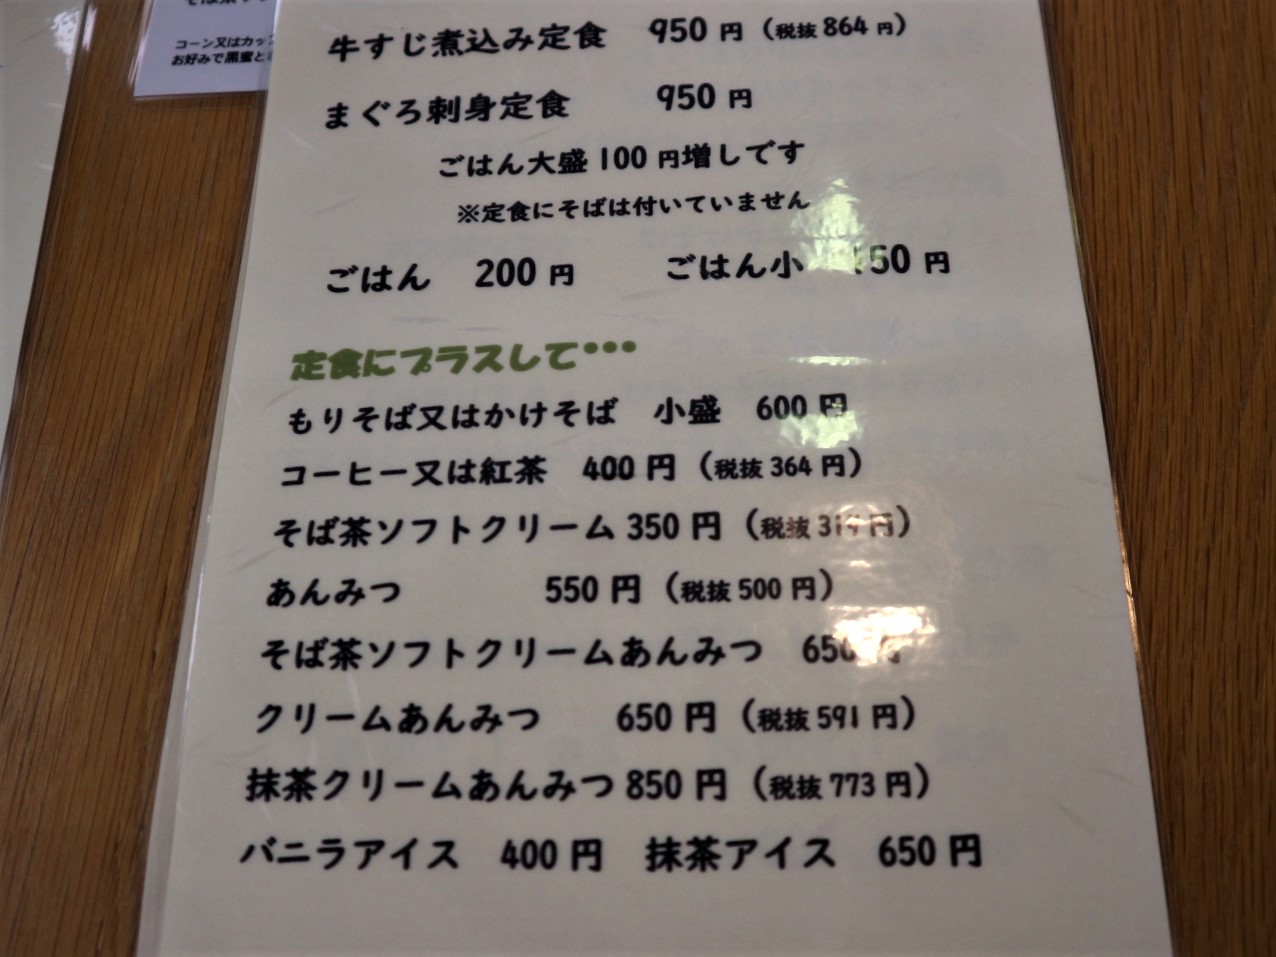 コーン又はカップ
お好みで黒蜜と
牛すじ煮込み定食 950円（税抜864円）
まぐろ刺身定食 950円
ごはん大盛100円増しです
※定食にそばは付いていません
ごはん 200円 ごはん小 150円
定食にプラスして・・・
もりそば又はかけそば 小盛 600円
コーヒー又は紅茶 400円（税抜364円）
そば茶ソフトクリーム350円（税抜319円）
あんみつ 550円（税抜500円）
そば茶ソフトクリームあんみつ 650円
クリームあんみつ 650円（税抜591円）
抹茶クリームあんみつ850円（税抜773円）
バニラアイス 400円 抹茶アイス 650円